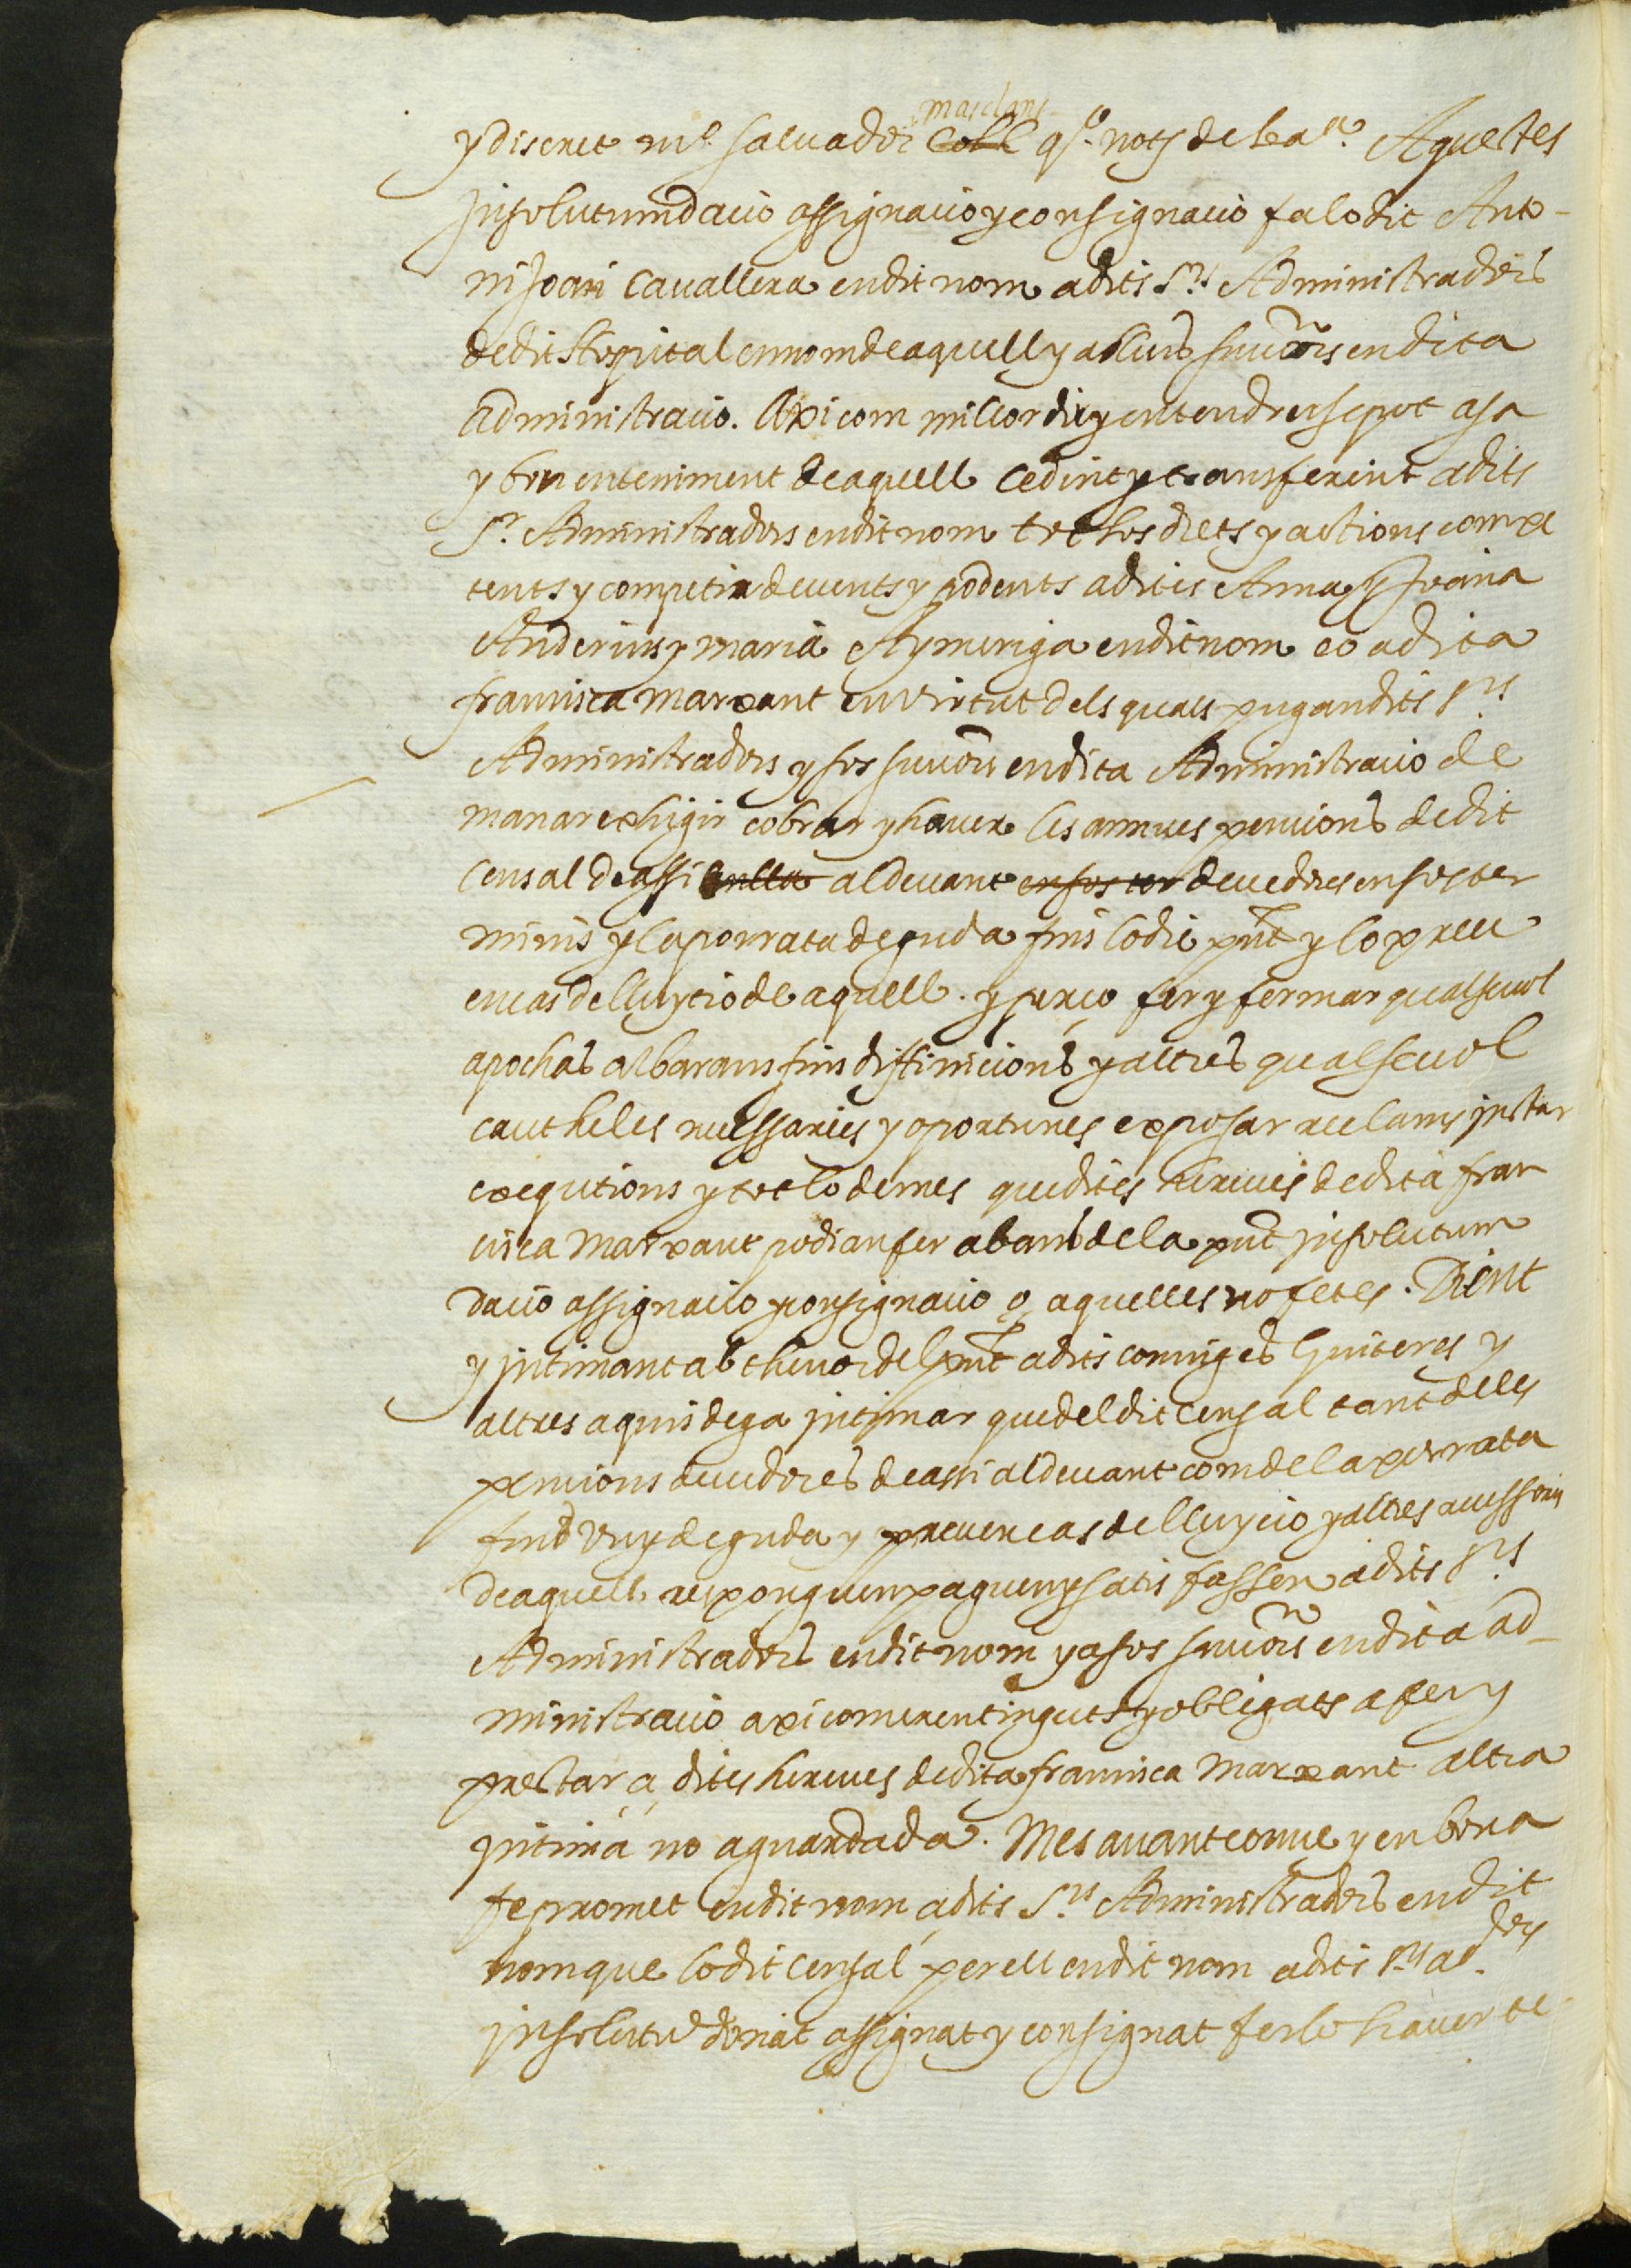 y discret m.e salvador masclans q.o noty de bar.a Aquestes
Jnsolutumdacio assignacio y consignacio fa lo dit Anto-
ni Joan Cavallera en dit nom a dits S.rs Administradors
de dit Hospital en nom de aquell y a llurs succ̃ors en dita
administracio. Axi com millor dir y entendrerse pot a sa
y bon enteniment de aquell cedint y transferint a dits
S.rs Administradors en dit nom tot los drets y actions compe
tents y competir devents y podents a dites Anna y Joana
Anderius y maria Aymeriga en dit nom eo a dita
francisca Marxant en virtut dels quals pugan dits S.rs
Administradors y sos succ̃ors en dita Administracio de
manar exhigir cobrar y haver les annues pencions de dit
Censal de assi al devant devedores en sos ter
minis y la porrata deguda fins lo die pñt y lo preu
en cas de lluycio de aquell. y perço fer y fermar qualsevol
apochas albarans fins diffinicions y altres qualsevol
cautheles necessaries y oportunes exposar reclams instar
exequtions y tot lo demes que dites hereues de dita fran
cisca Marxant podian fer abans de la pñt insolutum
dacio assignacio y consignacio o aquelles no fetes. Dient
y intimant ab thenor del pñt a dits coniuges Guiteres y
altres a quis dega intimar que del dit censal tant deles
pencions devedores de assi al devant com de la porrata
fins vuy deguda y preu en cas de lluycio y altres accessoris
de aquell responguen paguen y satisfassen a dits S.rs
Administradors en dit nom y a sos succ̃ors en dita ad-
ministracio axi com eren tinguts y obligats a fer y
prestar a dites hereues de dita francisca Marxant altra
intima no aguardada. Mes avant conve y en bona
fe promet en dit nom a dits S.rs Administradors en dit
nom que lo dit censal per ell en dit nom a dits S.rs ad.dors
insolutũ donat assignat y consignat ferlo haver te-